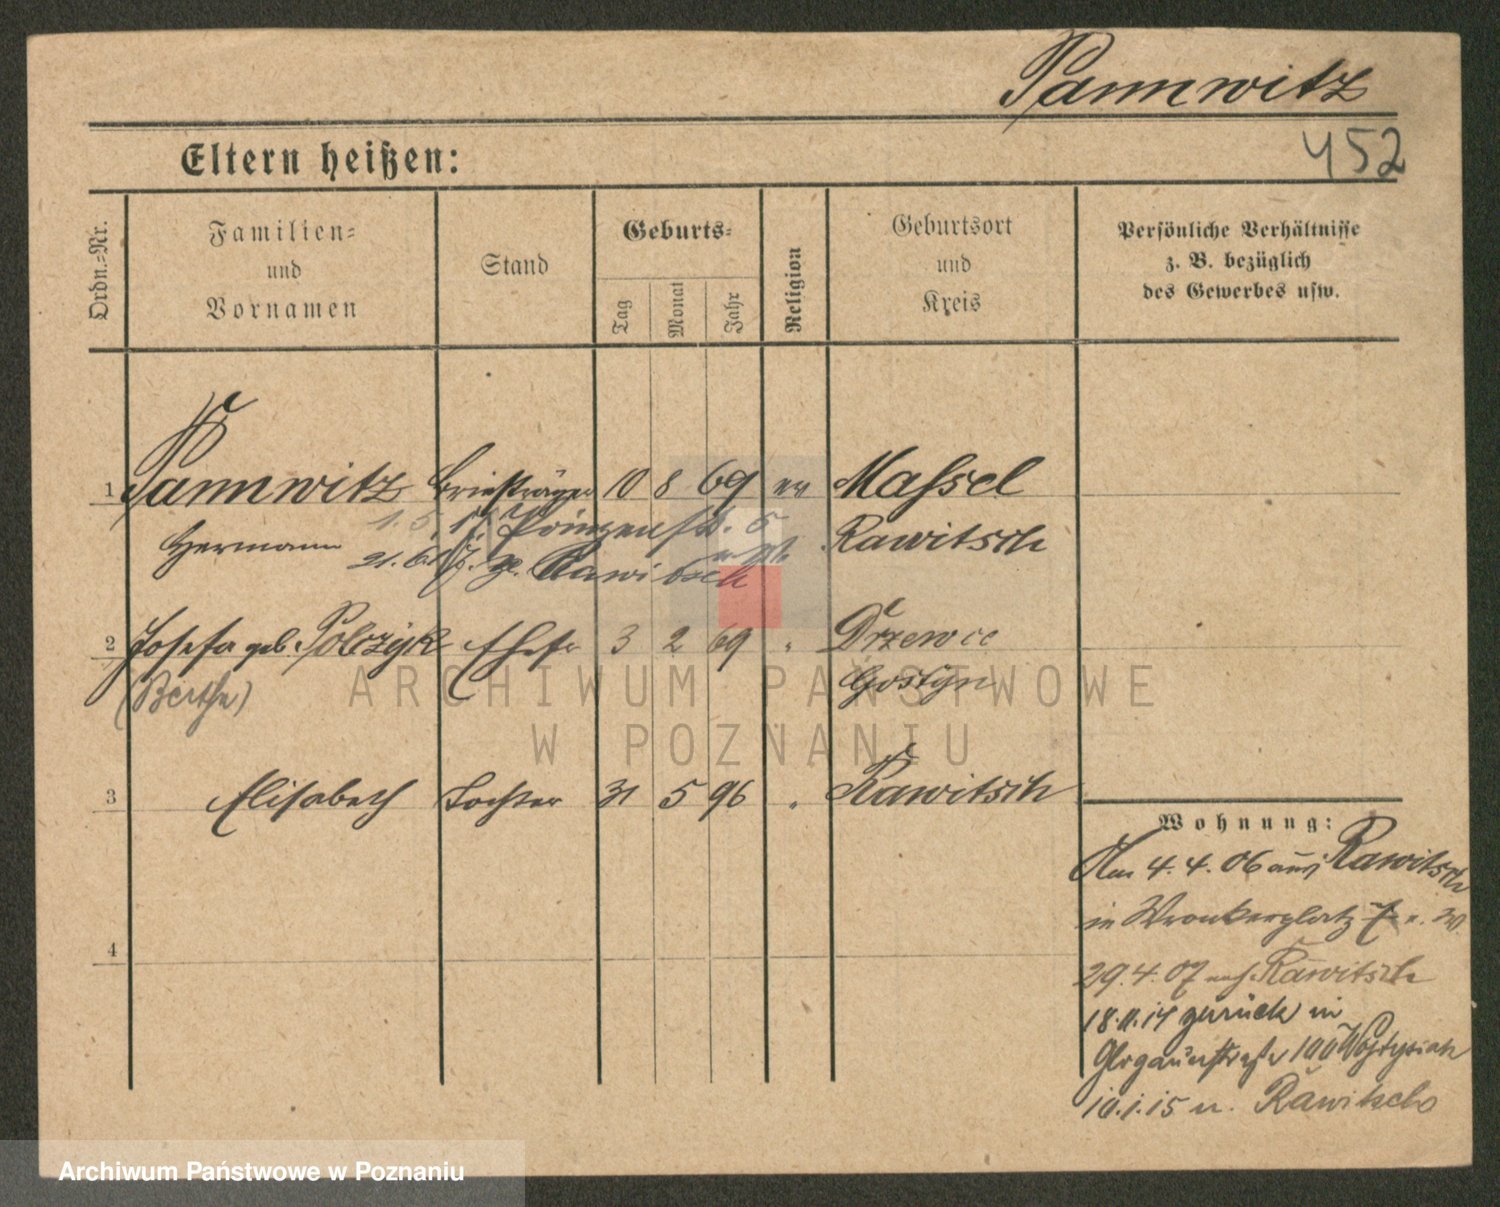 Pannwitz
452
Eltern heißen:
Ordn.-Nr.
Familien-
und
Vornamen
Stand
Geburts-
Tag
Monat
Jahr
Religion
Geburtsort
und
Kreis
Persönliche Verhältnisse
z. B. bezüglich
des Gewerbes usw.
1 Pannwitz Briefträger 10 8 69 ev Massel
Hermann 1. 5. Prinzenstr. 5 Rawitsch
21. 6. Rawitsch
2 Josefa geb. Polczyk Ehefr 3 2 69 " Drzewce
(Berthe) Gostyn
3 Elisabeth Tochter 31 5 96 " Rawitsch
4
Wohnung:
Am 4. 4. 06 aus Rawitsch
in Wronkerplatz 7
29. 4. 07 nach Rawitsch
18. 11. 14 zurück in
Glogauerstraße 100 Wojtysiak
10. 1. 15 n. Rawitsch
ARCHIWUM PAŃSTWOWE
W POZNANIU
Archiwum Państwowe w Poznaniu